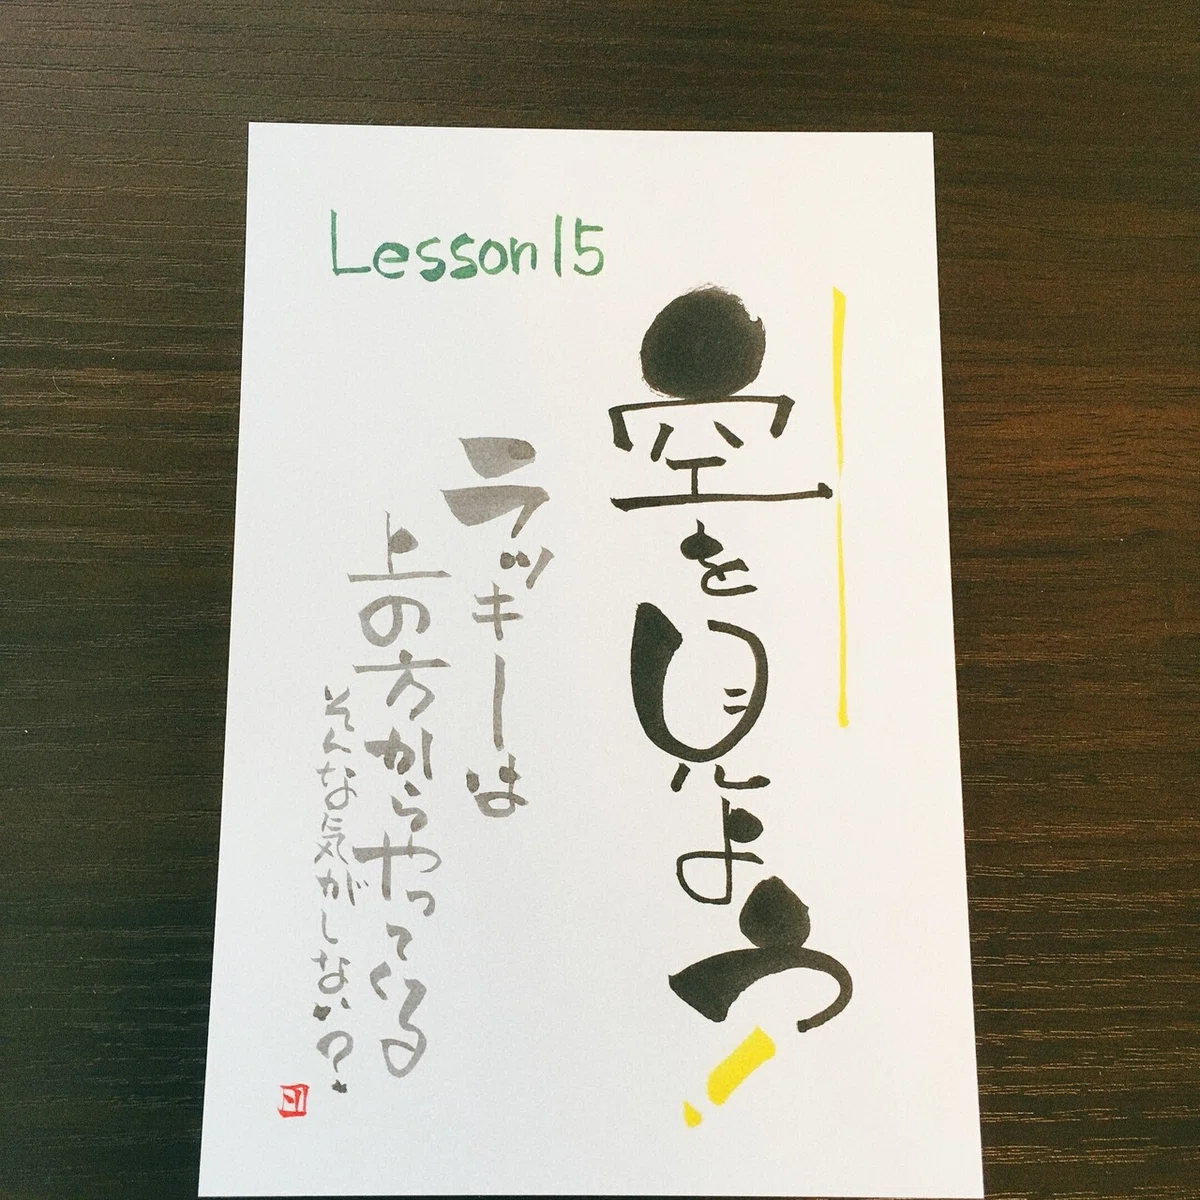 Lesson 15
空を見よう!
ラッキーは
上の方からやってくる
そんな気がしない?